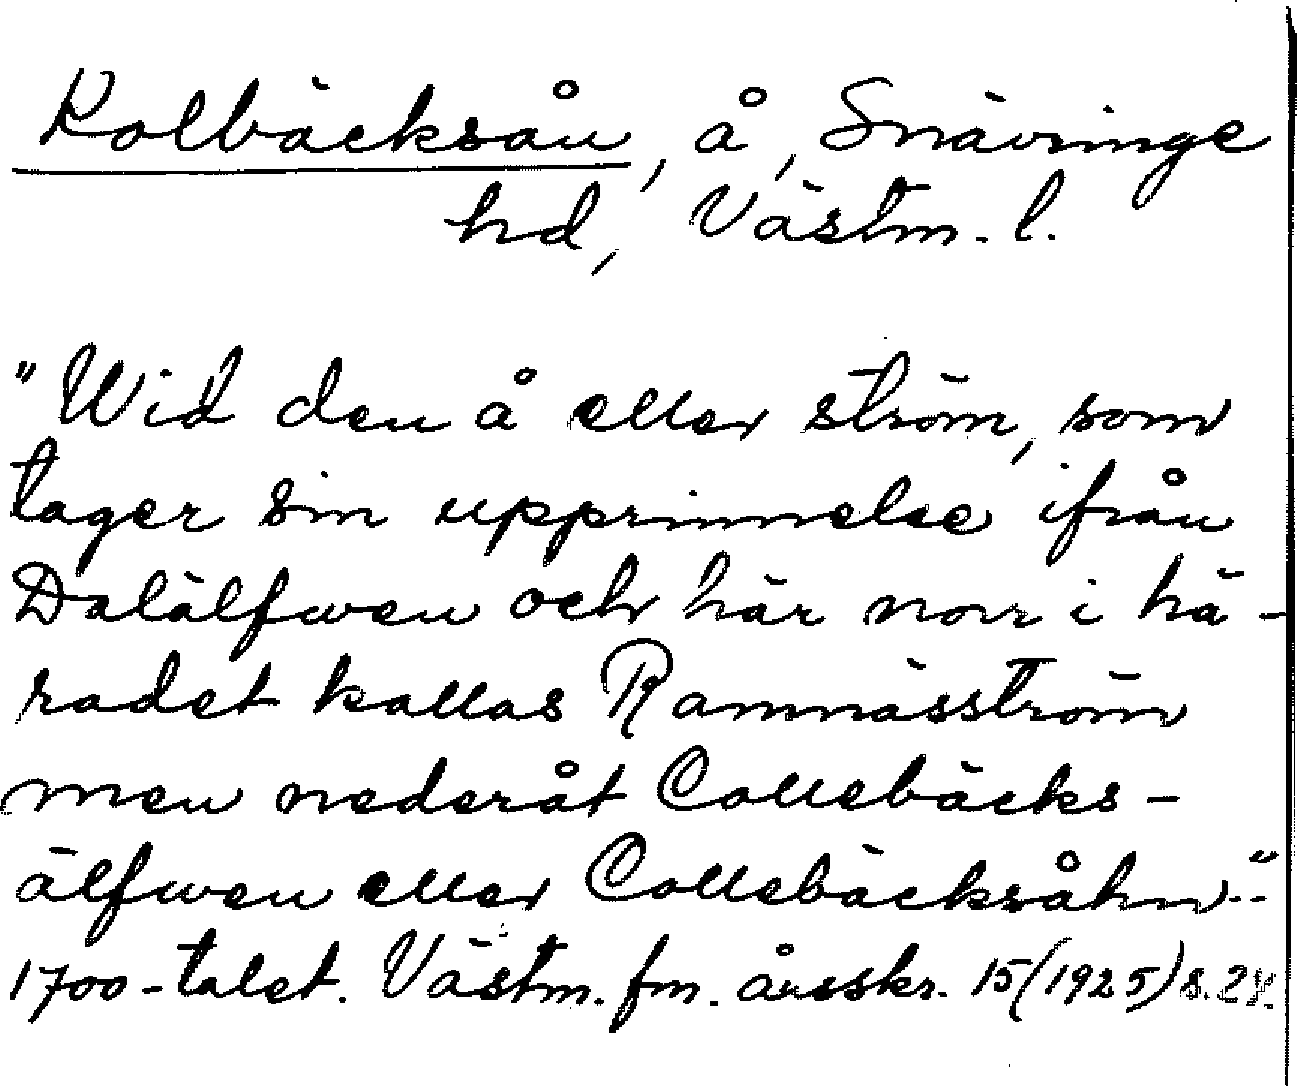 Kolbäcksån, å, Snävringe
hd, Västm. l.
"Wid den å eller ström, som
tager sin upprinnelse ifrån
Dalälfwen och här norr i hä-
radet kallas Ramnäsström
men nederåt Collebäcks-
älfwen eller Collebäcksåhn..."
1700-talet. Västm. fm. årsskr. 15(1925) s.